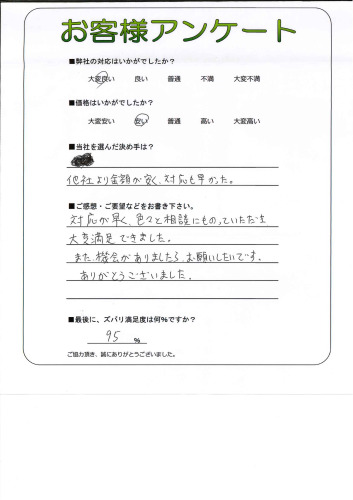 お客様アンケート
■弊社の対応はいかがでしたか？
大変良い 良い 普通 不満 大変不満
■価格はいかがでしたか？
大変安い 安い 普通 高い 大変高い
■当社を選んだ決め手は？
他社より金額が安く、対応も早かった。
■ご感想・ご要望などをお書き下さい。
対応が早く、色々と相談にものっていただき
大変満足できました。
また、機会がありましたら、お願いしたいです。
ありがとうございました。
■最後に、ズバリ満足度は何%ですか？
95 %
ご協力頂き、誠にありがとうございました。